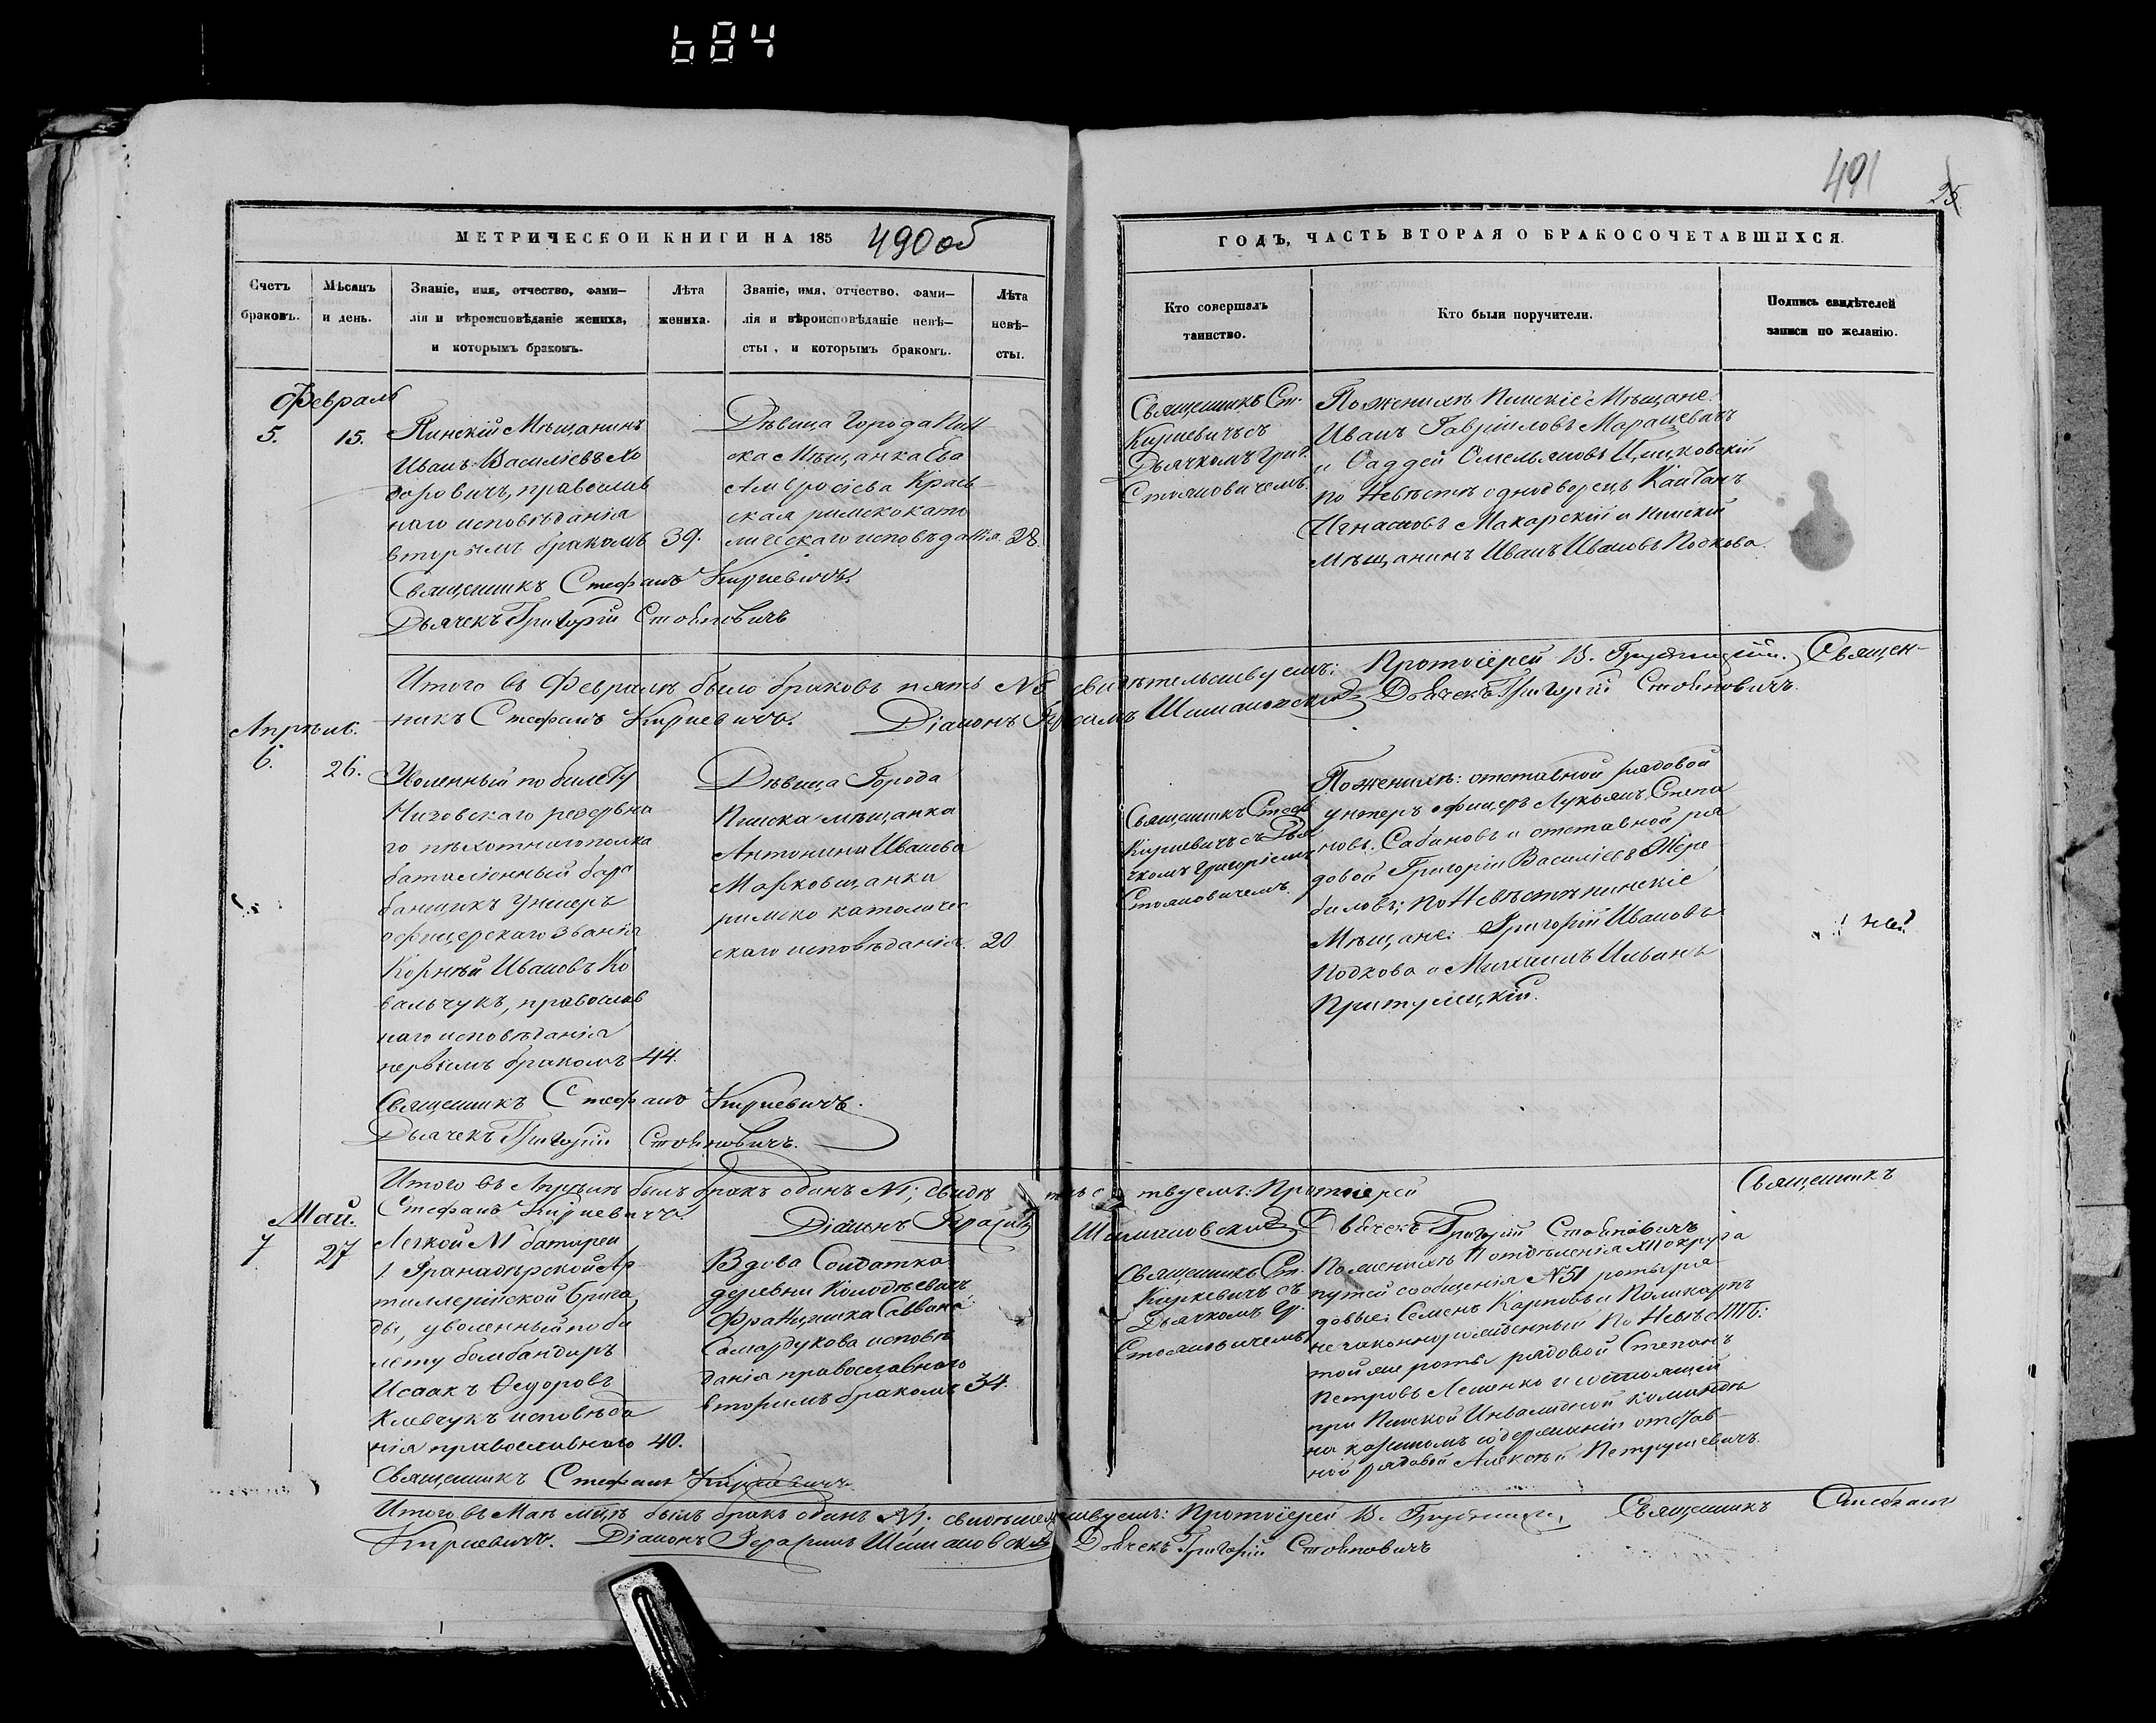 684
491
25
МЕТРИЧЕСКОЙ КНИГИ НА 185
490 об
ГОДЪ, ЧАСТЬ ВТОРАЯ О БРАКОСОЧЕТАВШИХСЯ.
Счетъ браковъ.
Мѣсяцъ и день.
Званіе, имя, отчество, фами-
лія и вѣроисповѣданіе жениха,
и которымъ бракомъ.
Лѣта
жениха.
Званіе, имя, отчество, фами-
лія и вѣроисповѣданіе невѣ-
сты, и которымъ бракомъ.
Лѣта
невѣ-
сты.
Кто совершалъ
таинство.
Кто были поручители.
Подпись свидѣтелей
записи по желанію.
Февраль
5. 15.
Пинскій Мѣщанинъ
Иванъ Василіевъ Хо
доровичъ, православ
наго исповѣданія
вторымъ бракомъ 39.
Дѣвица Города Пин
ска Мѣщанка Ева
Амвросіева Крась-
ская римскокато
лическаго исповѣданія. 28.
Священникъ Ст.
Киркевичъ съ
Дьячкомъ Григ.
Стояновичемъ.
По женихѣ Пинскіе Мѣщане:
Иванъ Гавріиловъ Марацевичъ
и Фаддей Омельяновъ
по Невѣстѣ однодворецъ Каитанъ
Игнатовъ Макарскій и пинскій
Мѣщанинъ Иванъ Ивановъ Подкова.
Священникъ Стефанъ Киркевичъ.
Дьячекъ Григорій Стояновичъ
Итого въ Февралѣ было браковъ пять №5, свидѣтельствуемъ: Протоіерей В. Священ-
никъ Стефанъ Киркевичъ. Діаконъ Герасимъ Шимановскій Дьячекъ Григорій Стояновичъ.
Апрѣль.
6. 26.
Уволенный по билету
Низовскаго резервна
го пѣхотнаго полка
баталіонный бара
банщикъ Унтеръ
офицерскаго званія
Корнѣй Ивановъ Ко
вальчукъ, православ
наго исповѣданія
первымъ бракомъ 44.
Дѣвица Города
Пинска мѣщанка
Антонина Иванова
Марковщанка
римско католичес
каго исповѣданія. 20
Священникъ Стеф.
Киркевичъ съ Дья
чкомъ Григоріемъ
Стояновичемъ.
По женихѣ: отставной рядовой
унтеръ офицеръ Лукьянъ Степа
новъ Сабиновъ и отставной ря
довой Григорій Василіевъ Жере
биловъ; по Невѣстѣ пинскіе
Мѣщане: Григорій Ивановъ
Подкова и Михаилъ
Притулицкій.
Священникъ Стефанъ Киркевичъ.
Дьячекъ Григорій Стояновичъ.
Итого въ Апрѣлѣ былъ бракъ одинъ №1, свидѣтельствуемъ: Протоіерей Священникъ
Стефанъ Киркевичъ. Діаконъ Герасимъ Шимановскій Дьячекъ Григорій Стояновичъ
Май.
7 27
Легкой №1 батареи
1. Гранадерской Ар
тиллерійской брига
ды, уволенный по би
лету бомбандиръ
Исаакъ Ѳедоровъ
Клевчукъ исповѣда
нія православнаго 40.
Вдова Солдатка
деревни Колодѣевичъ
Францишка Саввина
Самардукова исповѣ
данія православнаго
вторымъ бракомъ 34.
Священникъ Ст.
Киркевичъ съ
Дьячкомъ Гр.
Стояновичемъ
По женихѣ II отдѣленія XII округа
путей сообщенія №51 роты ря-
довые: Семенъ Карповъ и Поликарпъ
незаконнорожденный По Невѣстѣ:
той же роты рядовой Степанъ
Петровъ Леменко и состоящій
при Пинской Инвалидной командѣ
на казенномъ содержаніи отстав-
ной рядовой Алексѣй Петрушевичъ.
Священникъ Стефанъ Киркевичъ
Итого въ Маѣ мцѣ былъ бракъ одинъ №1. свидѣтельствуемъ: Протоіерей В. Священникъ Стефанъ
Киркевичъ. Діаконъ Герасимъ Шимановскій Дьячекъ Григорій Стояновичъ